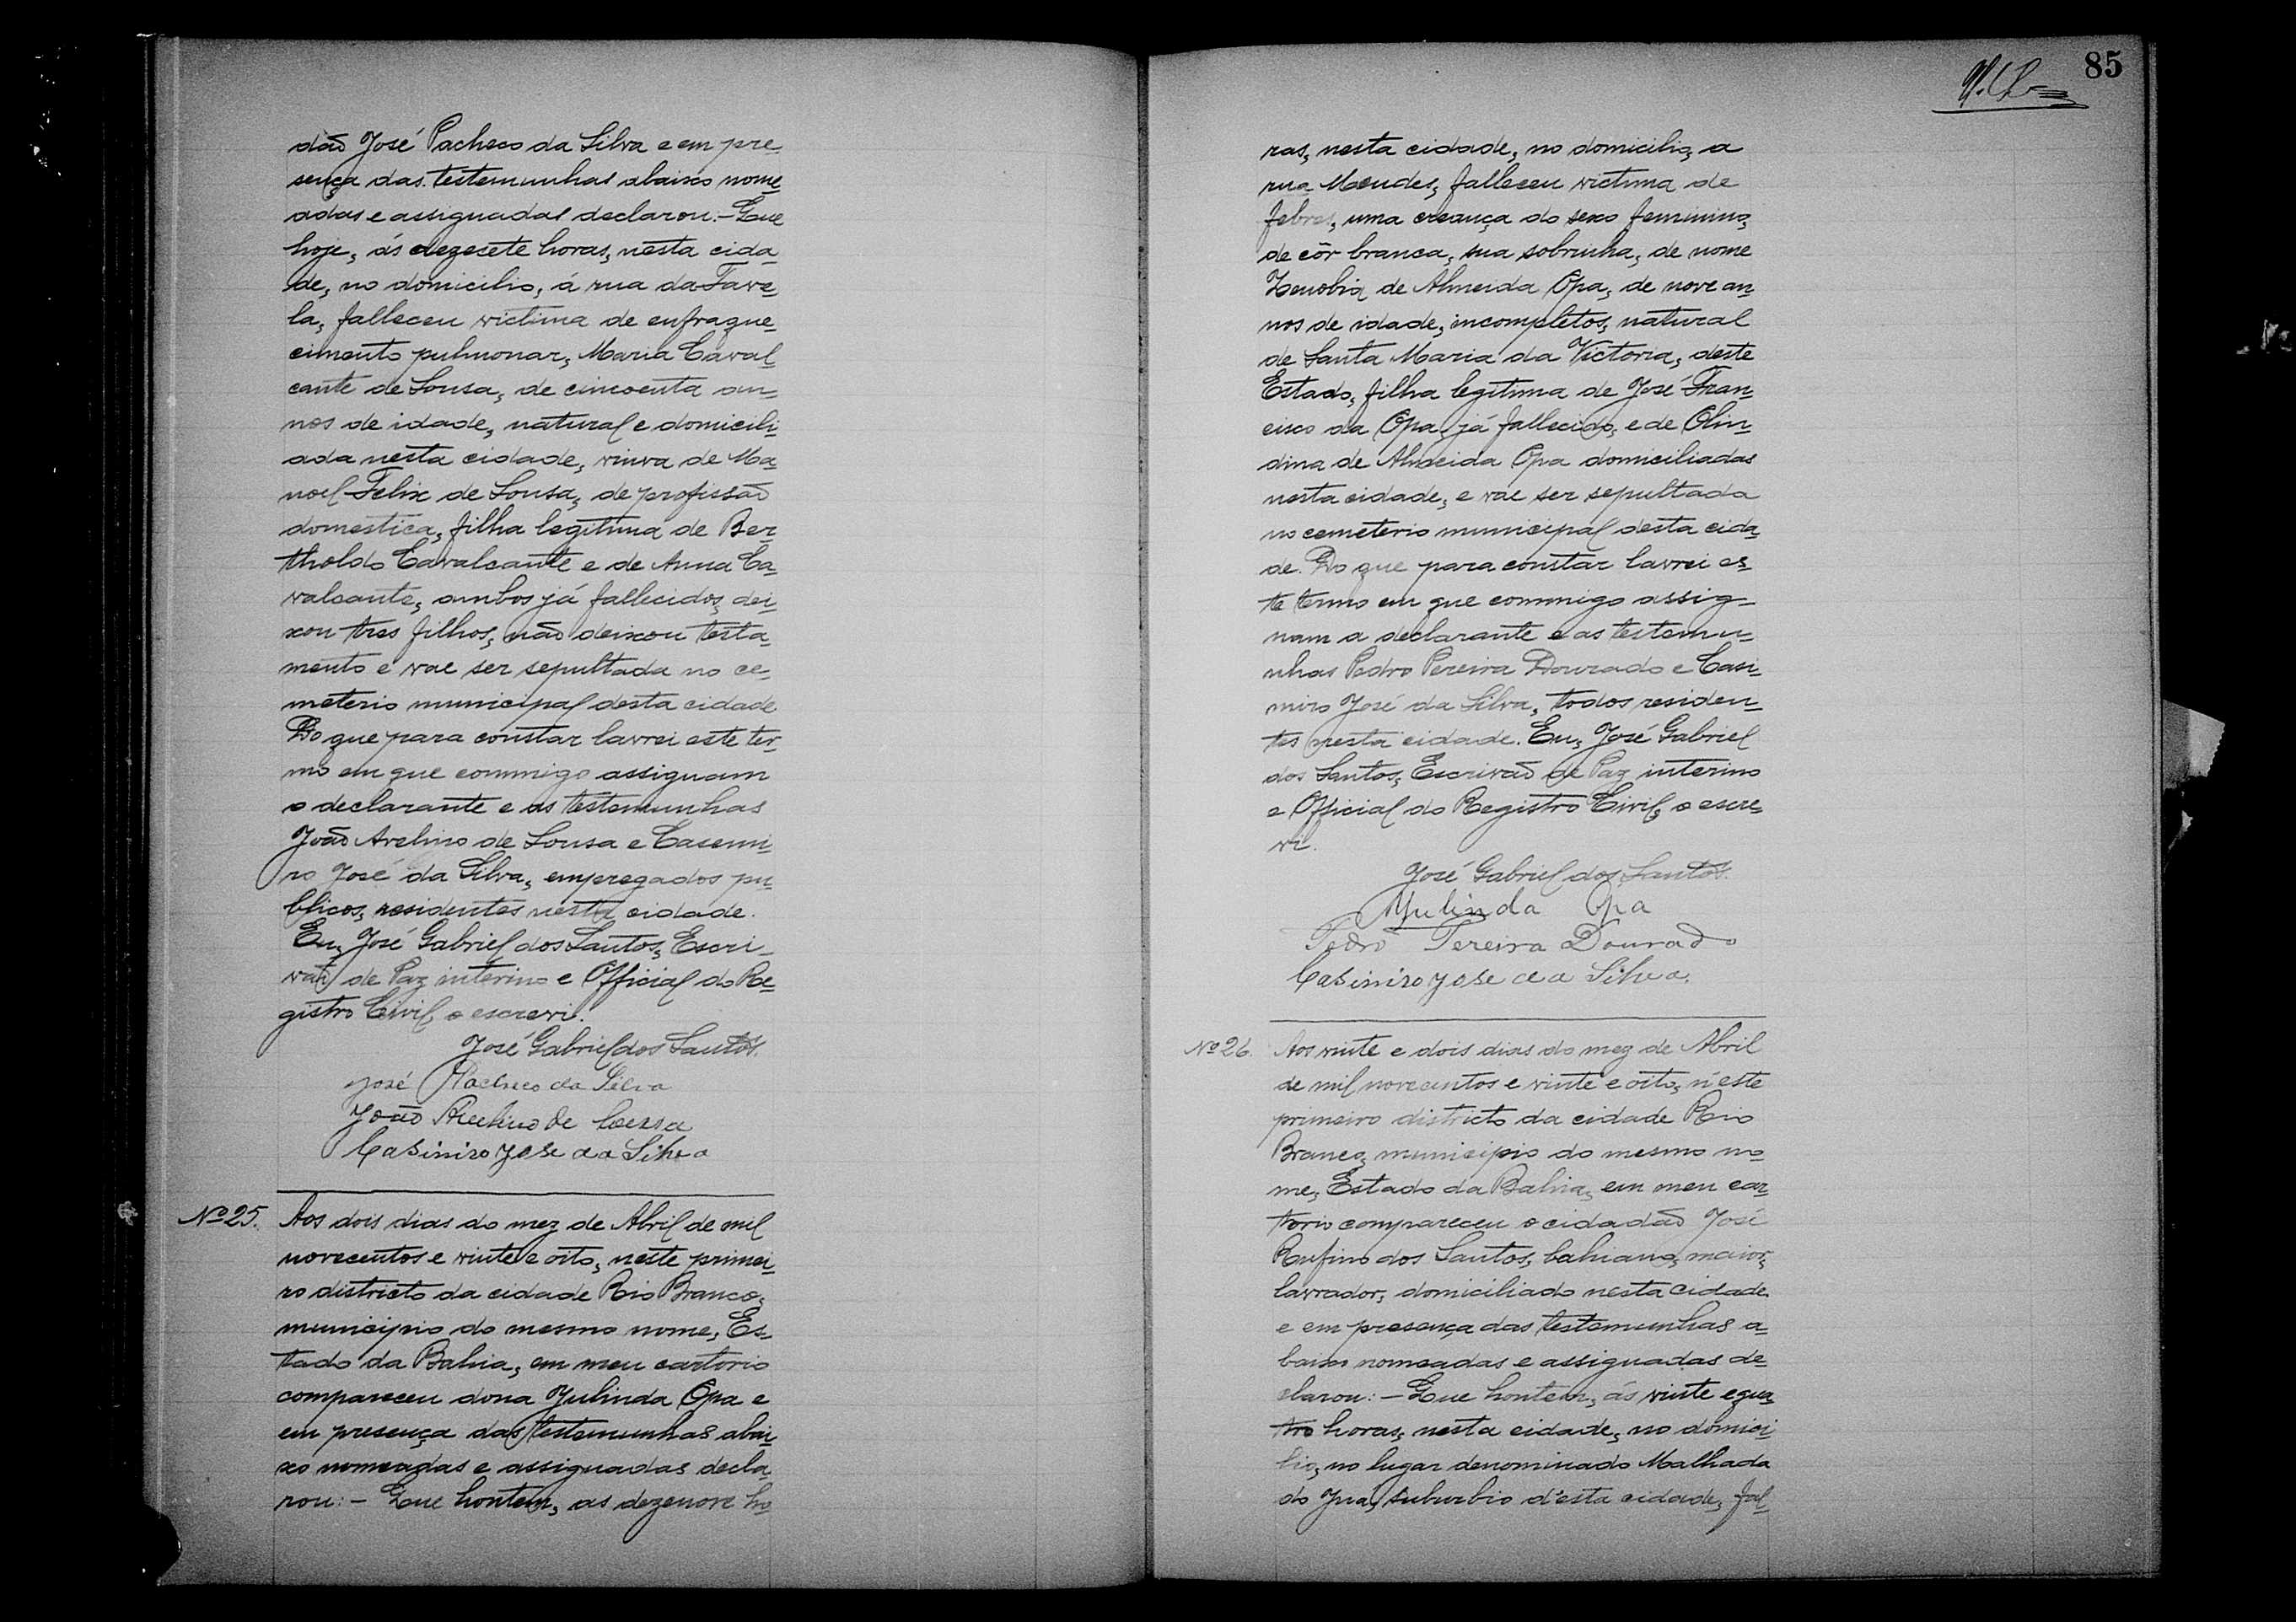 dão José Pacheco da Silva e em pre-
sença das testemunhas abaixo nome-
adas e assignadas declarou:- Que
hoje, ás dezesete horas, nesta cida-
de, no domicilio, á rua da Fave-
la, falleceu victima de enfraque-
cimento pulmonar, Maria Caval-
cante de Sousa, de cincoenta an-
nos de idade, natural e domicili-
ada nesta cidade, viuva de Ma-
noel Felix de Sousa, de profissão
domestica, filha legitima de Ber-
tholdo Cavalcante e de Anna Ca-
valcante, ambos já fallecidos, dei-
xou tres filhos, não deixou testa-
mento e vae ser sepultada no ce-
meterio municipal desta cidade
Do que para constar lavrei este ter-
mo em que commigo assignam
o declarante e as testemunhas
João Avelino de Sousa e Casemi-
ro José da Silva, empregados pu-
blicos, residentes nesta cidade.
Eu, José Gabriel dos Santos, Escri-
vão de Paz interino e Official do Re-
gistro Civil, o escrevi.
José Gabriel dos Santos.
José Pacheco da Silva
João Avelino de Souza
Casimiro Jose da Silva
Nº 25. Aos dois dias do mez de Abril de mil
novecentos e vinte e oito, neste primei-
ro districto da cidade Rio Branco,
municipio do mesmo nome, Es-
tado da Bahia, em meu cartorio
compareceu dona Yulinda Opa e
em presença das testemunhas abai-
xo nomeadas e assignadas decla-
rou:- Que hontem, as dezenove ho-
85
ras, nesta cidade, no domicilio, a
rua Mendes, falleceu victima de
febres, uma creança do sexo feminino,
de côr branca, sua sobrinha, de nome
Zenobia de Almeida Opa, de nove an-
nos de idade, incompletos, natural
de Santa Maria da Victoria, deste
Estado, filha legitima de José Fran-
cisco da Opa, já fallecido, e de Olin-
dina de Almeida Opa domiciliadas
nesta cidade, e vae ser sepultada
no cemeterio municipal desta cida-
de. Do que para constar lavrei es-
te termo em que commigo assig-
nam a declarante e as testemu-
nhas Pedro Pereira Dourado e Casi-
miro José da Silva, todos residen-
tes nesta cidade. Eu, José Gabriel
dos Santos, Escrivão de Paz interino
e Official do Registro Civil, o escre-
vi.
José Gabriel dos Santos.
Yulinda Opa
Pedro Pereira Dourado
Casimiro Jose da Silva.
Nº 26. Aos vinte e dois dias do mez de Abril
de mil novecentos e vinte e oito, n'este
primeiro districto da cidade Rio
Branco, municipio do mesmo no-
me, Estado da Bahia, em meu car-
torio compareceu o cidadão José
Rufino dos Santos, bahiano, maior,
lavrador, domiciliado nesta cidade
e em presença das testemunhas a-
baixo nomeadas e assignadas de-
clarou:- Que hontem, ás vinte e qua-
tro horas, nesta cidade, no domici-
lio, no lugar denominado Malhada
do Juá, suburbio d'esta cidade, fal-